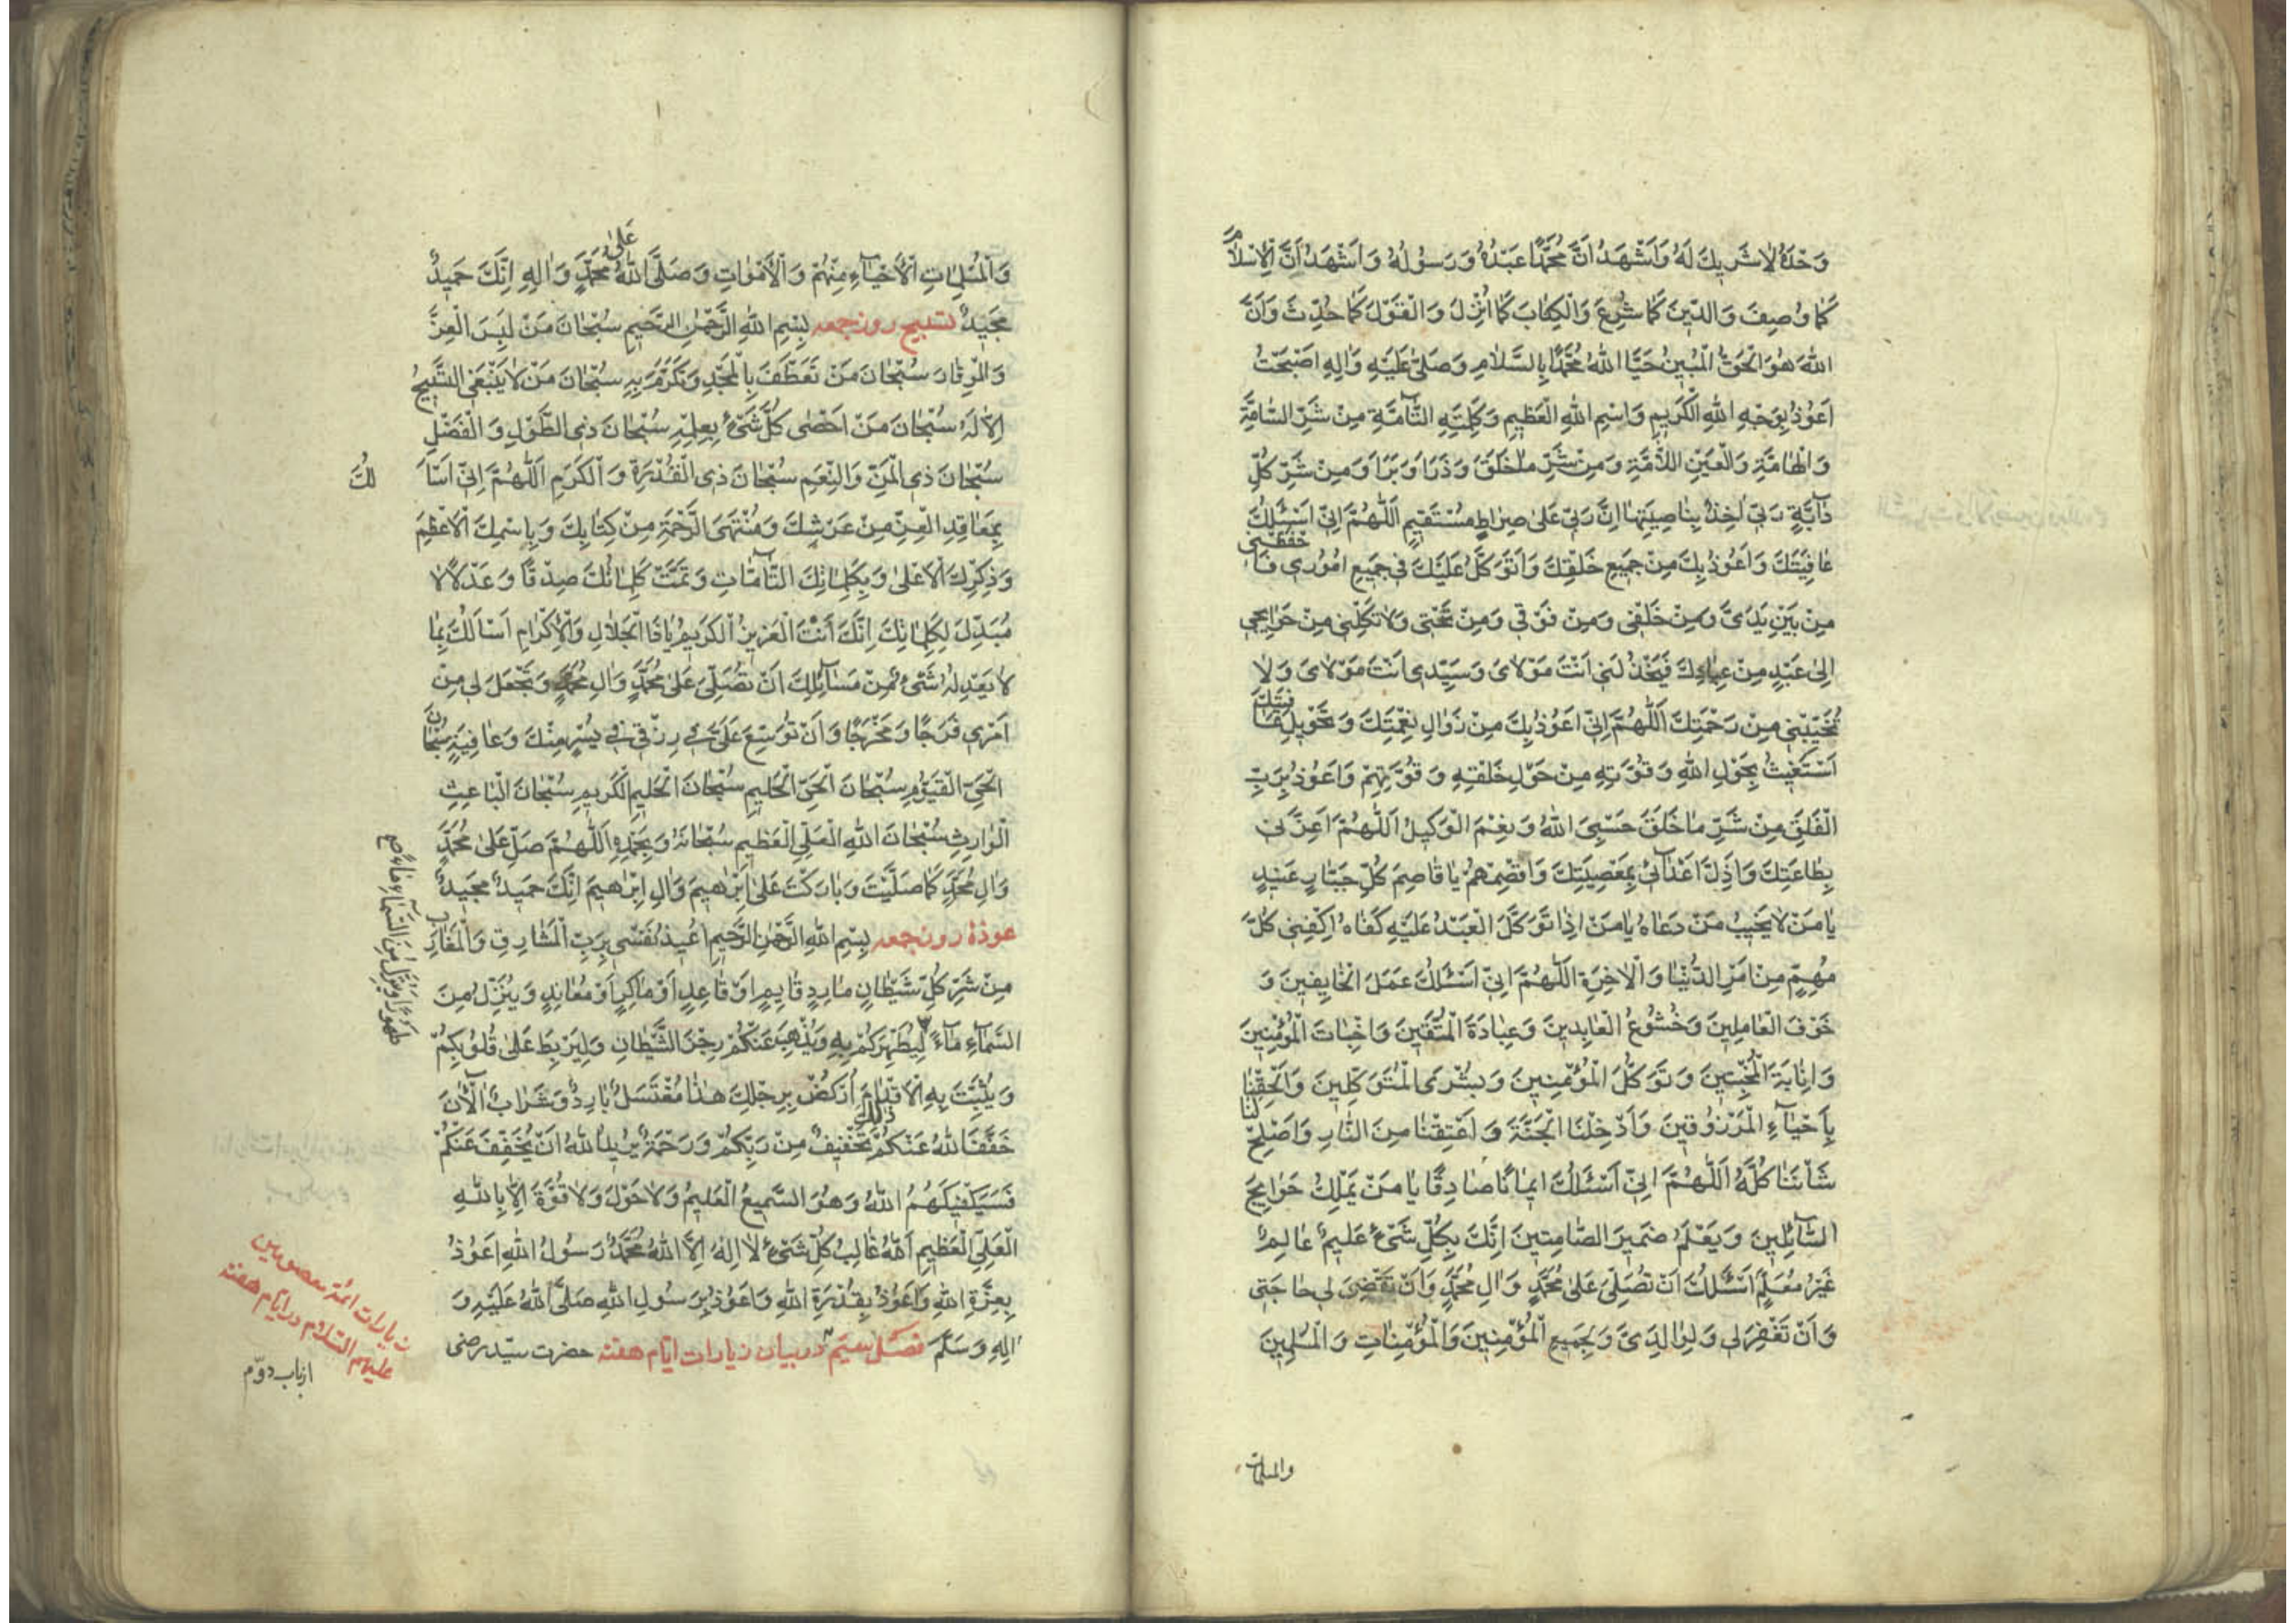 وَحْدَهُ لَا شَرِيكَ لَهُ وَأَشْهَدُ أَنَّ مُحَمَّدًا عَبْدُهُ وَرَسُولُهُ وَأَشْهَدُ أَنَّ الْإِسْلَامَ
كَمَا وُصِفَ وَالدِّينَ كَمَا شُرِعَ وَالْكِتَابَ كَمَا أُنْزِلَ وَالْقَوْلَ كَمَا حُدِّثَ وَأَنَّ
اللّٰهَ هُوَ الْحَقُّ الْمُبِينُ حَيَّا اللّٰهُ مُحَمَّدًا بِالسَّلَامِ وَصَلَّى عَلَيْهِ وَآلِهِ أَصْبَحْتُ
أَعُوذُ بِوَجْهِ اللّٰهِ الْكَرِيمِ وَاسْمِ اللّٰهِ الْعَظِيمِ وَكَلِمَتِهِ التَّآمَّةِ مِنْ شَرِّ السَّامَّةِ
وَالْهَامَّةِ وَالْعَيْنِ اللَّامَّةِ وَمِنْ شَرِّ مَا خَلَقَ وَذَرَأَ وَبَرَأَ وَمِنْ شَرِّ كُلِّ
دَآبَّةٍ رَبِّي آخِذٌ بِنَاصِيَتِهَا إِنَّ رَبِّي عَلَى صِرَاطٍ مُسْتَقِيمٍ اَللّٰهُمَّ إِنِّي أَسْئَلُكَ
عَافِيَتَكَ وَأَعُوذُ بِكَ مِنْ جَمِيعِ خَلْقِكَ وَأَتَوَكَّلُ عَلَيْكَ فِي جَمِيعِ أُمُورِي فَاحْفَظْنِي
مِنْ بَيْنِ يَدَيَّ وَمِنْ خَلْفِي وَمِنْ فَوْقِي وَمِنْ تَحْتِي وَلَا تَكِلْنِي مِنْ حَوَايِجِي
إِلَى عَبْدٍ مِنْ عِبَادِكَ فَيَخْذُلَنِي أَنْتَ مَوْلَايَ وَسَيِّدِي أَنْتَ مَوْلَايَ وَلَا
تُخَيِّبْنِي مِنْ رَحْمَتِكَ اَللّٰهُمَّ إِنِّي أَعُوذُ بِكَ مِنْ زَوَالِ نِعْمَتِكَ وَتَحْوِيلِ عَافِيَتِكَ
أَسْتَغِيثُ بِحَوْلِ اللّٰهِ وَقُوَّتِهِ مِنْ حَوْلِ خَلْقِهِ وَقُوَّتِهِمْ وَأَعُوذُ بِرَبِّ
الْفَلَقِ مِنْ شَرِّ مَا خَلَقَ حَسْبِيَ اللّٰهُ وَنِعْمَ الْوَكِيلُ اَللّٰهُمَّ أَعِزَّنِي
بِطَاعَتِكَ وَأَذِلَّ أَعْدَآئِي بِمَعْصِيَتِكَ وَاقْصِمْهُمْ يَا قَاصِمَ كُلِّ جَبَّارٍ عَنِيدٍ
يَا مَنْ لَا يُخَيِّبُ مَنْ دَعَاهُ يَا مَنْ إِذَا تَوَكَّلَ الْعَبْدُ عَلَيْهِ كَفَاهُ اكْفِنِي كُلَّ
مُهِمٍّ مِنْ أَمْرِ الدُّنْيَا وَالْآخِرَةِ اَللّٰهُمَّ إِنِّي أَسْئَلُكَ عَمَلَ الْخَايِفِينَ وَ
خَوْفَ الْعَامِلِينَ وَخُشُوعَ الْعَابِدِينَ وَعِبَادَةَ الْمُتَّقِينَ وَإِخْبَاتَ الْمُؤْمِنِينَ
وَإِنَابَةَ الْمُخْبِتِينَ وَتَوَكُّلَ الْمُؤْمِنِينَ وَبُشْرَى الْمُتَوَكِّلِينَ وَأَلْحِقْنَا
بِأَحْيَآءِ الْمَرْزُوقِينَ وَأَدْخِلْنَا الْجَنَّةَ وَأَعْتِقْنَا مِنَ النَّارِ وَأَصْلِحْ لَنَا
شَأْنَنَا كُلَّهُ اَللّٰهُمَّ إِنِّي أَسْئَلُكَ إِيمَانًا صَادِقًا يَا مَنْ يَمْلِكُ حَوَايِجَ
السَّآئِلِينَ وَيَعْلَمُ ضَمِيرَ الصَّامِتِينَ إِنَّكَ بِكُلِّ شَيْءٍ عَلِيمٌ عَالِمٌ
غَيْرُ مُعَلَّمٍ أَسْئَلُكَ أَنْ تُصَلِّيَ عَلَى مُحَمَّدٍ وَآلِ مُحَمَّدٍ وَأَنْ تَقْضِيَ لِي حَاجَتِي
وَأَنْ تَغْفِرَ لِي وَلِوَالِدَيَّ وَلِجَمِيعِ الْمُؤْمِنِينَ وَالْمُؤْمِنَاتِ وَالْمُسْلِمِينَ
والمسلمات
وَالْمُسْلِمَاتِ الْأَحْيَآءِ مِنْهُمْ وَالْأَمْوَاتِ وَصَلَّى اللّٰهُ عَلَى مُحَمَّدٍ وَآلِهِ إِنَّكَ حَمِيدٌ
مَجِيدٌ تسبیح روز جمعه بِسْمِ اللّٰهِ الرَّحْمٰنِ الرَّحِيمِ سُبْحَانَ مَنْ لَبِسَ الْعِزَّ
وَالْوِقَارَ سُبْحَانَ مَنْ تَعَطَّفَ بِالْمَجْدِ وَتَكَرَّمَ بِهِ سُبْحَانَ مَنْ لَا يَنْبَغِي التَّسْبِيحُ
إِلَّا لَهُ سُبْحَانَ مَنْ أَحْصَى كُلَّ شَيْءٍ بِعِلْمِهِ سُبْحَانَ ذِي الطَّوْلِ وَالْفَضْلِ
سُبْحَانَ ذِي الْمَنِّ وَالنِّعَمِ سُبْحَانَ ذِي الْقُدْرَةِ وَالْكَرَمِ اَللّٰهُمَّ إِنِّي أَسْأَلُكَ
بِمَعَاقِدِ الْعِزِّ مِنْ عَرْشِكَ وَمُنْتَهَى الرَّحْمَةِ مِنْ كِتَابِكَ وَبِاسْمِكَ الْأَعْظَمِ
وَذِكْرِكَ الْأَعْلَى وَبِكَلِمَاتِكَ التَّآمَّاتِ وَتَمَّتْ كَلِمَاتُكَ صِدْقًا وَعَدْلًا لَا
مُبَدِّلَ لِكَلِمَاتِكَ إِنَّكَ أَنْتَ الْعَزِيزُ الْكَرِيمُ يَا ذَا الْجَلَالِ وَالْإِكْرَامِ أَسْأَلُكَ بِمَا
لَا يَعْدِلُهُ شَيْءٌ مِنْ مَسَآئِلِكَ أَنْ تُصَلِّيَ عَلَى مُحَمَّدٍ وَآلِ مُحَمَّدٍ وَتَجْعَلَ لِي مِنْ
أَمْرِي فَرَجًا وَمَخْرَجًا وَأَنْ تُوَسِّعَ عَلَيَّ فِي رِزْقِي فِي يُسْرٍ مِنْكَ وَعَافِيَةٍ سُبْحَانَ
الْحَيِّ الْقَيُّومِ سُبْحَانَ الْحَيِّ الْحَلِيمِ سُبْحَانَ الْحَلِيمِ الْكَرِيمِ سُبْحَانَ الْبَاعِثِ
الْوَارِثِ سُبْحَانَ اللّٰهِ الْعَلِيِّ الْعَظِيمِ سُبْحَانَهُ وَبِحَمْدِهِ اَللّٰهُمَّ صَلِّ عَلَى مُحَمَّدٍ
وَآلِ مُحَمَّدٍ كَمَا صَلَّيْتَ وَبَارَكْتَ عَلَى إِبْرَاهِيمَ وَآلِ إِبْرَاهِيمَ إِنَّكَ حَمِيدٌ مَجِيدٌ
عوذهٔ روز جمعه بِسْمِ اللّٰهِ الرَّحْمٰنِ الرَّحِيمِ أُعِيذُ نَفْسِي بِرَبِّ الْمَشَارِقِ وَالْمَغَارِبِ
مِنْ شَرِّ كُلِّ شَيْطَانٍ مَارِدٍ قَايِمٍ أَوْ قَاعِدٍ أَوْ مَاكِرٍ أَوْ مُعَانِدٍ وَيُنَزِّلُ مِنَ
السَّمَآءِ مَآءً لِيُطَهِّرَكُمْ بِهِ وَيُذْهِبَ عَنْكُمْ رِجْزَ الشَّيْطَانِ وَلِيَرْبِطَ عَلَى قُلُوبِكُمْ
وَيُثَبِّتَ بِهِ الْأَقْدَامَ اُرْكُضْ بِرِجْلِكَ هَذَا مُغْتَسَلٌ بَارِدٌ وَشَرَابٌ اَلْآنَ
خَفَّفَ اللّٰهُ عَنْكُمْ ذَلِكَ تَخْفِيفٌ مِنْ رَبِّكُمْ وَرَحْمَةٌ يُرِيدُ اللّٰهُ أَنْ يُخَفِّفَ عَنْكُمْ
فَسَيَكْفِيكَهُمُ اللّٰهُ وَهُوَ السَّمِيعُ الْعَلِيمُ وَلَا حَوْلَ وَلَا قُوَّةَ إِلَّا بِاللّٰهِ
الْعَلِيِّ الْعَظِيمِ اَللّٰهُ غَالِبُ كُلِّ شَيْءٍ لَا إِلٰهَ إِلَّا اللّٰهُ مُحَمَّدٌ رَسُولُ اللّٰهِ أَعُوذُ
بِعِزَّةِ اللّٰهِ وَأَعُوذُ بِقُدْرَةِ اللّٰهِ وَأَعُوذُ بِرَسُولِ اللّٰهِ صَلَّى اللّٰهُ عَلَيْهِ وَ
آلِهِ وَسَلَّمَ فصل سیّم در بیان زیارات ایّام هفته حضرت سیّد رضی
طَهُورًا وَيُنَزِّلُ مِنَ السَّمَآءِ مَآءً
زیارات ائمّهٔ معصومین
علیهم السّلام در ایّام هفته
از باب دوّم